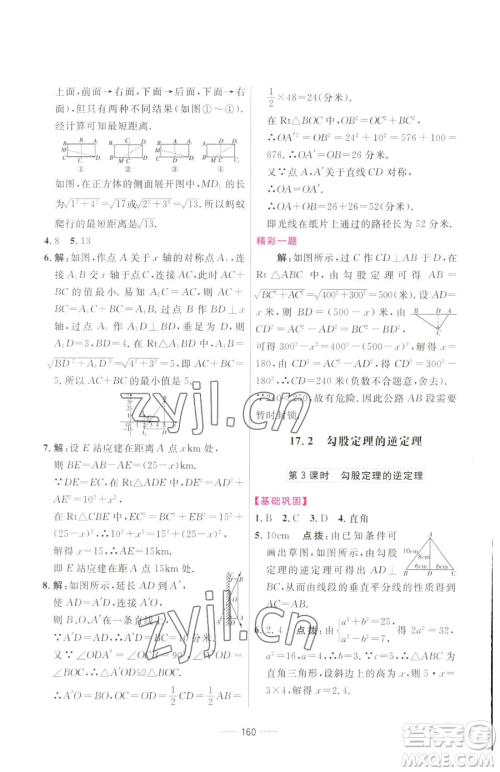 上面,前面→右面,下面→右面,下面→后
面,但只有两种不同结果(如图①~④).
经计算可知最短距离.
① ② ③ ④
如图,在正方体的侧面展开图中,MD₁的长
为√(2²+3²)=√13或√(4²+1²)=√17.所以蚂蚁
爬行的最短距离为√13.
4. 8 5. 13
6. 解:如图,作点A关于x轴的对称点A₁,连
接A₁B交x轴于点C,连接AC,此时AC+
BC的值最小.易知A₁C=AC,所以AC+
BC=A₁C+BC=A₁B.过点B作BD⊥x
轴,过点A₁作A₁D⊥BD,垂足为D,则
A₁D=4,BD=3.在Rt△A₁BD中,A₁B=
√(BD²+A₁D²)=√(4²+3²)=5,即AC+BC=
5.所以AC+BC的最小值是5.
7. 解:设E站应建在距离A点x km处.
∵DE=CE,AD²+AE²=DE²,
∴DE²=AE²+AD²=10²+x².
∵在Rt△CBE中,CE²=BC²+BE²=
(25-x)²+15²,∴10²+x²=15²+
(25-x)².解得x=15.
所以E站应建在距离A点15 km处.
8. 解:如图所示,延长AD到A′,
使得DO=OA′,连接A′O,
则B,O,A′在一条直线上.
∴A′D=AD=10分米.
又∵∠ODA′=∠OCB=90°,∠A′OD=
∠BOC,∴△A′OD≌△BOC.
∴A′O=BO,OC=OD=1/2CD=1/2AB=
1/2×48=24(分米).
在Rt△BOC中,BC=AD=10分米,
∴OA′²=OB²=24²+10²=576+100=
676.∴OA′=OB=26分米.
又∵点A与点A′关于直线CD对称,
∴OA=OA′=26分米.
∴OA+OB=26+26=52(分米).
即光线在纸片上通过的路径长为52分米.
精彩一题
解:如图,过C作CD⊥AB于点D,在
Rt△ABC中,由勾股定理得AB=
√(BC²+AC²)=√(400²+300²)=500(米).设AD=x
米,则BD=(500-x)米.由勾
股定理,得CD²=AC²-AD²,
CD²=BC²-BD².
可得300²-x²=400²-(500-x)²,解得x=
180.由此,得CD²=300²-180²,∴CD=240.
∵240<250,∴有危险.因此公路AB段需要
暂时封锁.
17.2 勾股定理的逆定理
第3课时 勾股定理的逆定理
【基础巩固】
1. B 2. C 3. D 4. 直角
5. 10cm 点拨:由已知条件可
画出草图,如图所示,由勾股
定理的逆定理可证AD⊥
BC,从而由线段的垂直平分线的性质可得
AC=AB.
6. 2.4 点拨:由{a²+b²=25, a²-b²=7,得2a²=32,
a²=16,∴{a=4, b=3.又∵4²+3²=5²,∴此三角形为
直角三角形,设斜边上的高为x,则5·x=
3×4,解得x=2.4.
160
zyjl.cn
zyjl.cn
答案圈
MXQE.COM